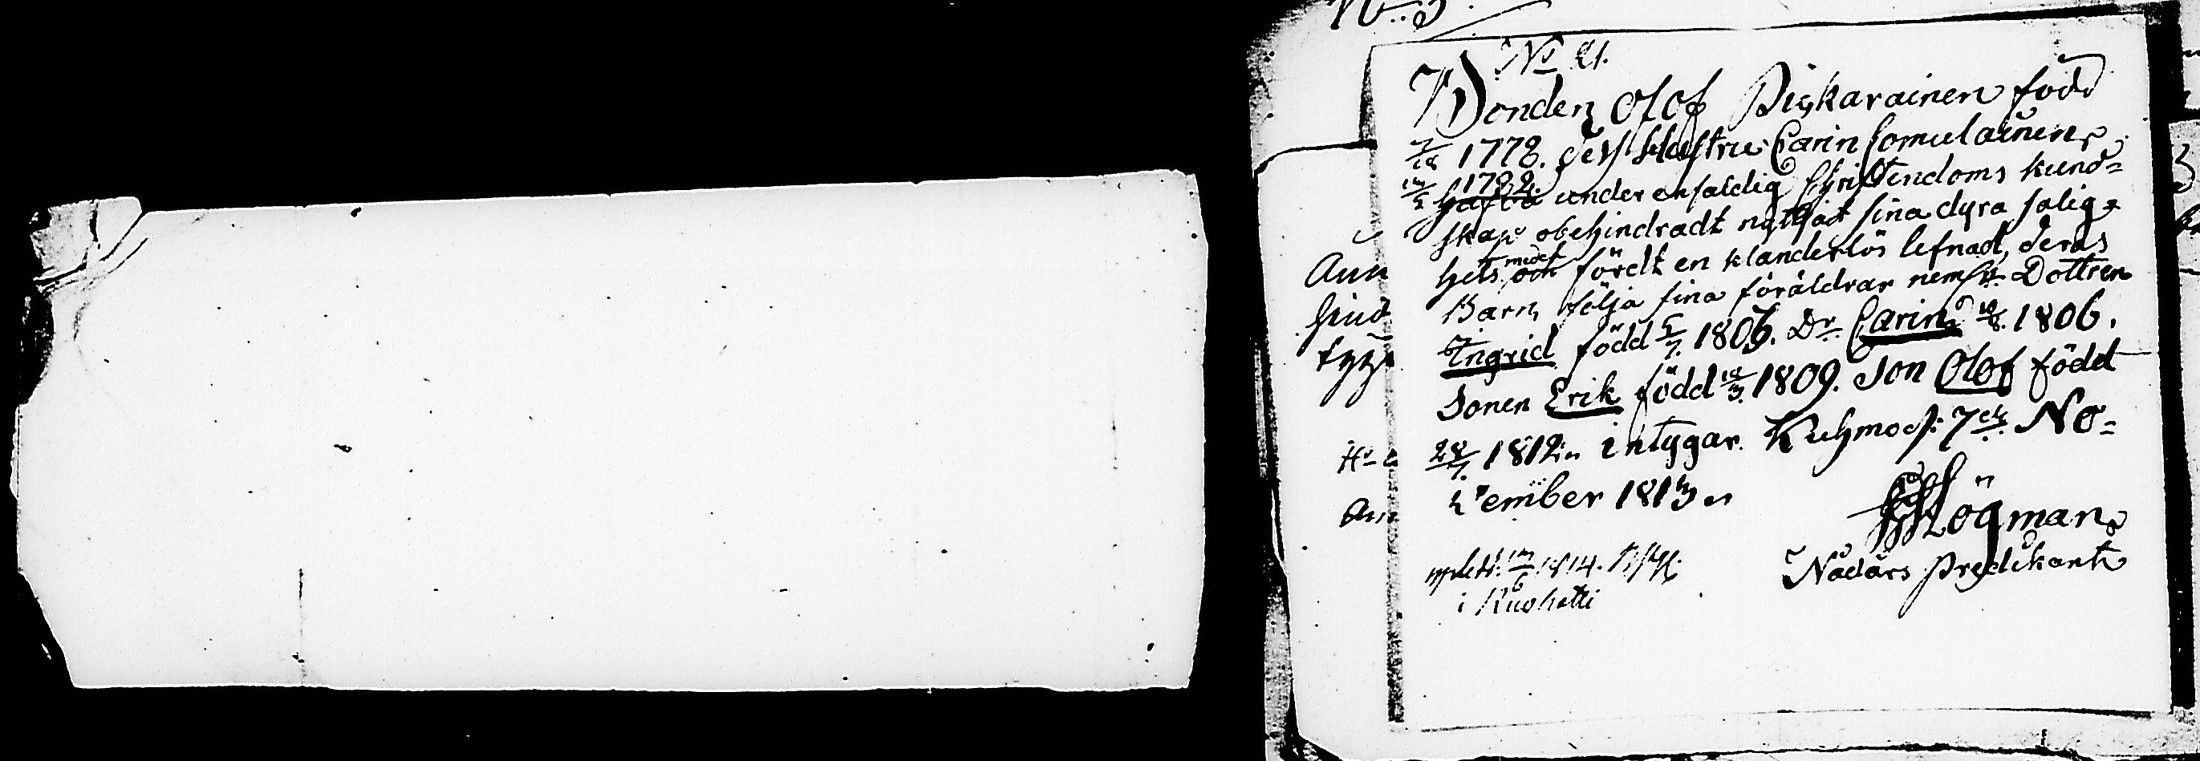 No 3.
No 21.
Bonden Olof Piskarainen född
7/12 1778. dess Hustru Carin Comulainen
1782. hafva under enfaldig Christendoms kund=
skap obehindradt nyttjat sina dyra salig=
hets medel och fördt en klanderlös lefnad, deras
Barn följa sina föräldrar neml. Dottren
Ingrid född 5/7. 1803. Dr. Carin 10/8. 1806.
Sonen Erik född 12/3. 1809. Son Olof född
28/7. 1812. intygar. Kuhmo d: 7de No=
vember 1813.
Högman
Nådårs Predikant
1814.
i Ruohetti
Ann